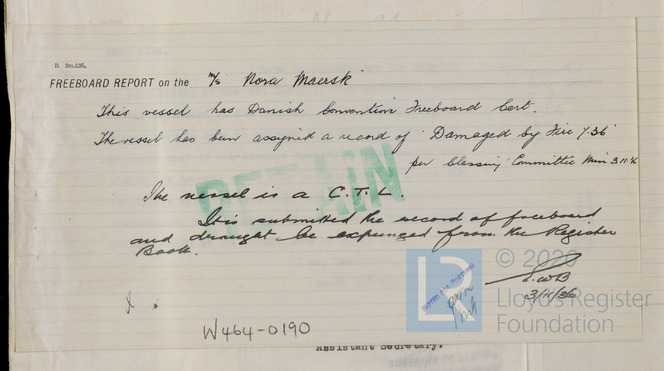 B. 2m.2.35.
FREEBOARD REPORT on the m/s Nora Maersk
This vessel has Danish Convention Freeboard Cert.
The vessel has been assigned a record of "Damaged by Fire 7.36"
per Classing Committee Min 3.11.36
RETAIN
The vessel is a C.T.L.
It is submitted the record of freeboard
and draught be expunged from the Register
Book.
3/11/36
W464-0190
© 2020
Lloyd's Register
Foundation
LR
Assistant Secretary.